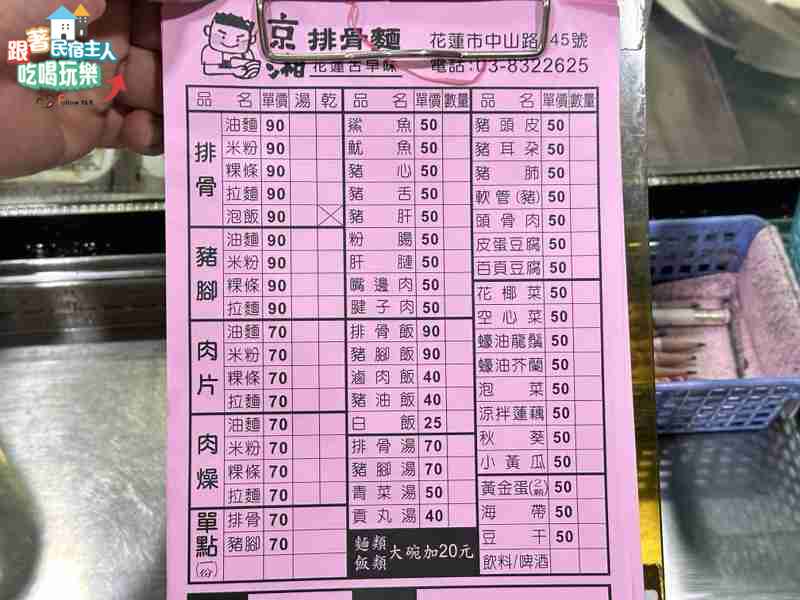 跟著民宿主人
吃喝玩樂
Follow Me
京湘 排骨麵
花蓮古早味
花蓮市中山路 45號
電話:03-8322625
品名 單價 湯 乾
排骨
油麵 90
米粉 90
粿條 90
拉麵 90
泡飯 90
豬腳
油麵 90
米粉 90
粿條 90
拉麵 90
肉片
油麵 70
米粉 70
粿條 70
拉麵 70
肉燥
油麵 70
米粉 70
粿條 70
拉麵 70
單點(份)
排骨 70
豬腳 70
品名 單價 數量
鯊魚 50
魷魚 50
豬心 50
豬舌 50
豬肝 50
粉腸 50
肝腱 50
嘴邊肉 50
腱子肉 50
排骨飯 90
豬腳飯 90
滷肉飯 40
豬油飯 40
白飯 25
排骨湯 70
豬腳湯 70
青菜湯 50
貢丸湯 40
麵類飯類 大碗加20元
品名 單價 數量
豬頭皮 50
豬耳朵 50
豬肺 50
軟管(豬) 50
頭骨肉 50
皮蛋豆腐 50
百頁豆腐 50
花椰菜 50
空心菜 50
蠔油龍鬚 50
蠔油芥蘭 50
泡菜 50
涼拌蓮藕 50
秋葵 50
小黃瓜 50
黃金蛋(2顆) 50
海帶 50
豆干 50
飲料/啤酒